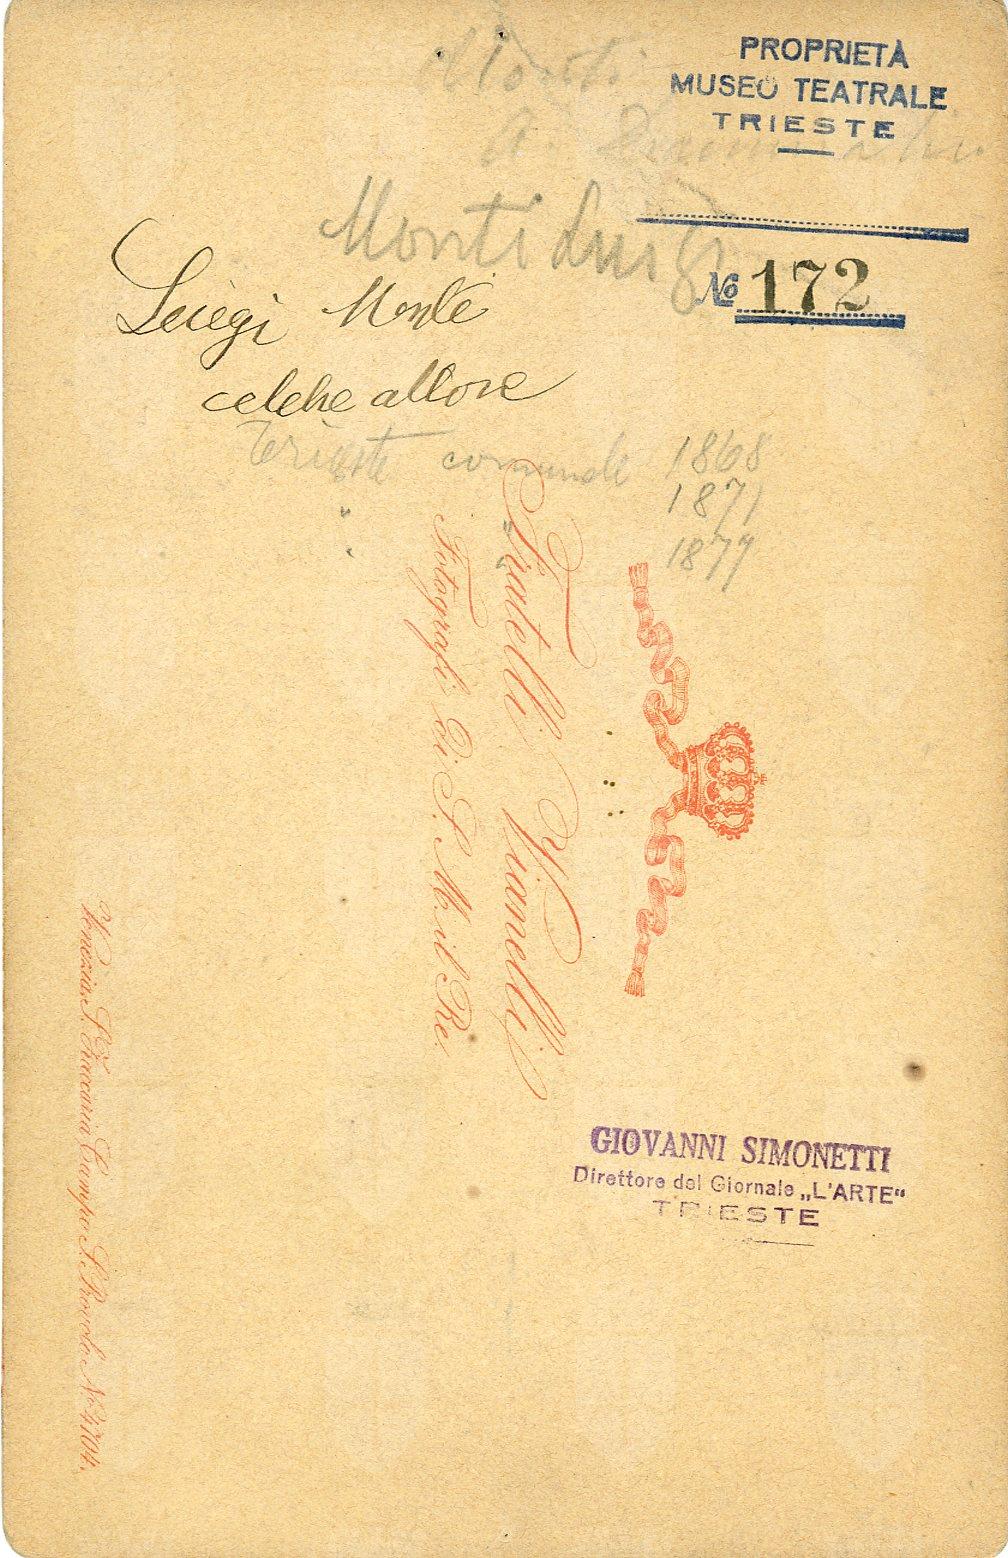 PROPRIETÀ
MUSEO TEATRALE
TRIESTE
Monti
A.
Monti Luigi
No 172
Luigi Monti
celebre attore
Trieste comunale 1868
" 1871
" 1877
Fratelli Vianelli
Fotografi di S. M. il Re.
Venezia, S. Zaccaria Campo S. Provolo No 4704.
GIOVANNI SIMONETTI
Direttore del Giornale „L'ARTE"
TRIESTE